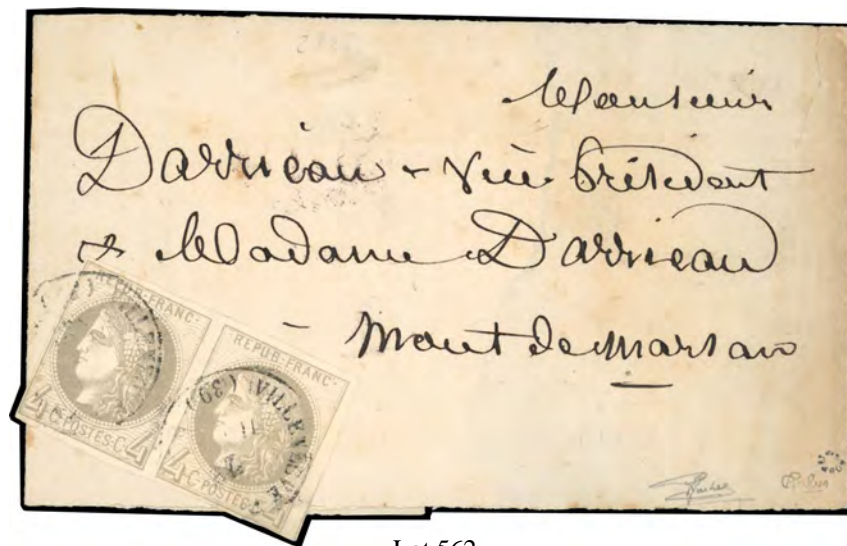 Monsieur
Darrieau - Vice Président
& Madame Darrieau
- Mont de Marsan
REPUB·FRANC·
4 C·POSTES·C 4
REPUB·FRANC·
4 C·POSTES·
VILLENEUVE (39)
Lot 562